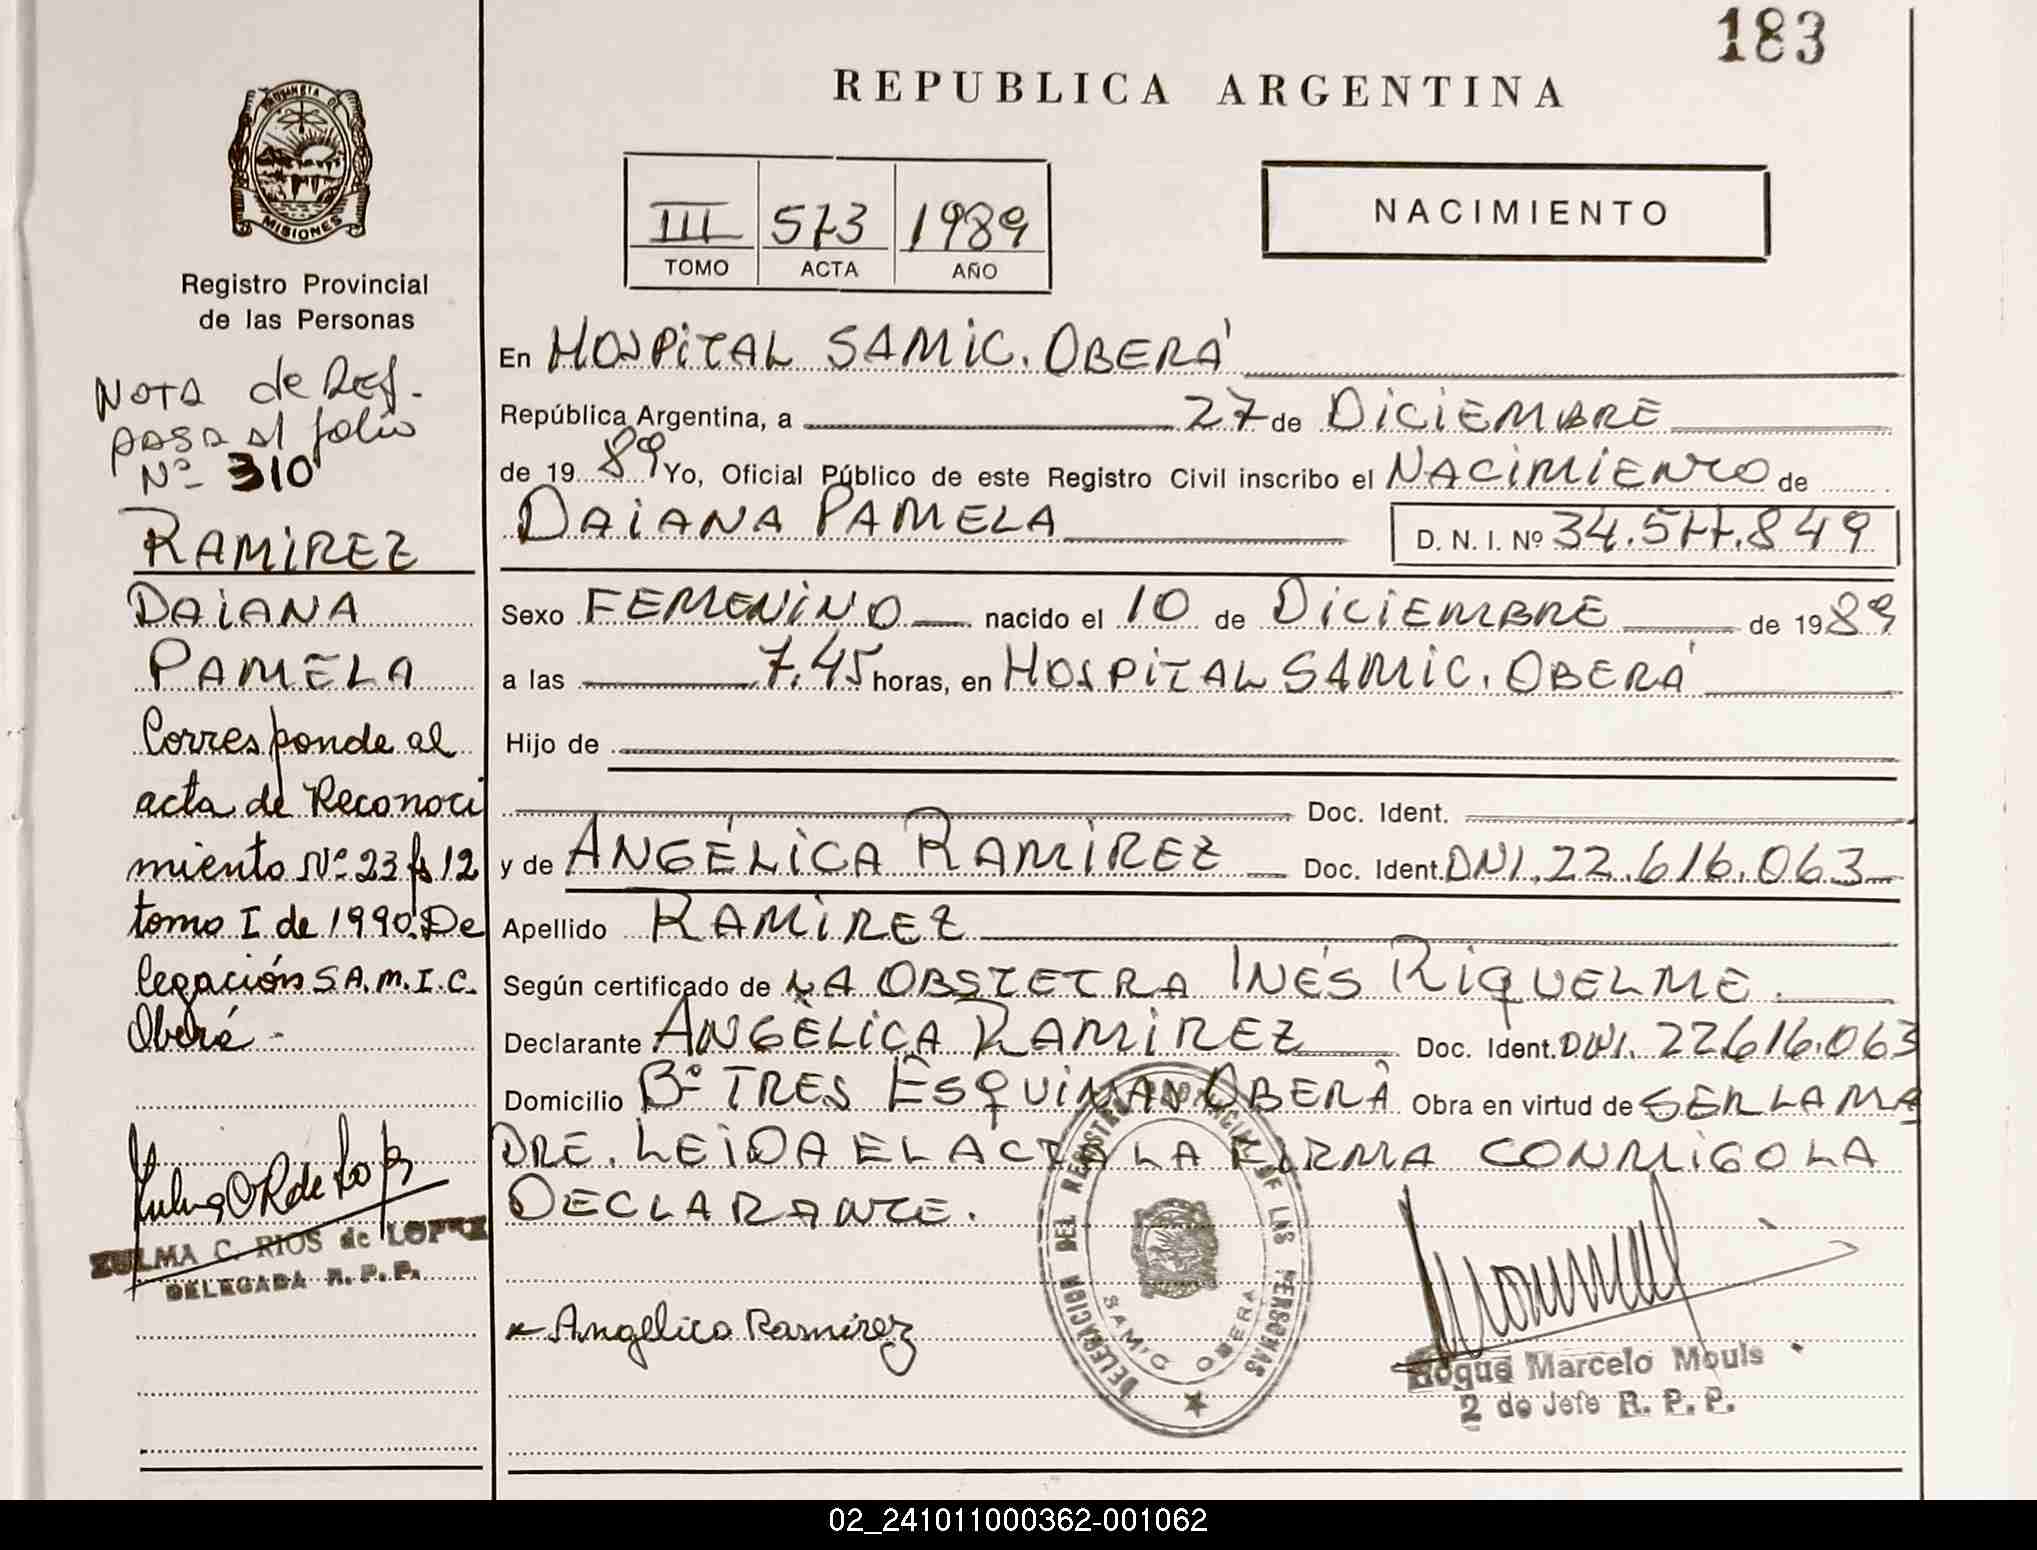 183
REPUBLICA ARGENTINA
PROVINCIA DE
MISIONES
Registro Provincial
de las Personas
III 573 1989
TOMO ACTA AÑO
NACIMIENTO
NOTA de Ref.
pasa al folio
Nº 310
RAMIREZ
DAIANA
PAMELA
Corresponde al
acta de Reconoci
miento Nº 23 fs 12
tomo I de 1990. De
legación S.A.M.I.C.
Oberá -
ZULMA C. RIOS de LOPEZ
DELEGADA R. P. P.
En HOSPITAL SAMIC. OBERÁ
República Argentina, a 27 de DICIEMBRE
de 19 89 Yo, Oficial Público de este Registro Civil inscribo el NACIMIENTO de
DAIANA PAMELA D. N. I. Nº 34.577.849
Sexo FEMENINO nacido el 10 de DICIEMBRE de 1989
a las 7.45 horas, en HOSPITAL SAMIC. OBERÁ
Hijo de
Doc. Ident.
y de ANGÉLICA RAMIREZ Doc. Ident. DNI. 22.616.063
Apellido RAMIREZ
Según certificado de LA OBSTETRA INÉS RIQUELME.
Declarante ANGÉLICA RAMIREZ Doc. Ident. DNI. 22616.063
Domicilio Bº TRES ESQUINAS OBERÁ Obra en virtud de SER LA MA
DRE. LEIDA EL ACTA LA FIRMA CONMIGO LA
DECLARANTE.
Angélica Ramirez
DELEGACION DEL REGISTRO PROVINCIAL DE LAS PERSONAS
SAMIC OBERA
Roque Marcelo Mouls
2 do Jefe R. P. P.
02_241011000362-001062